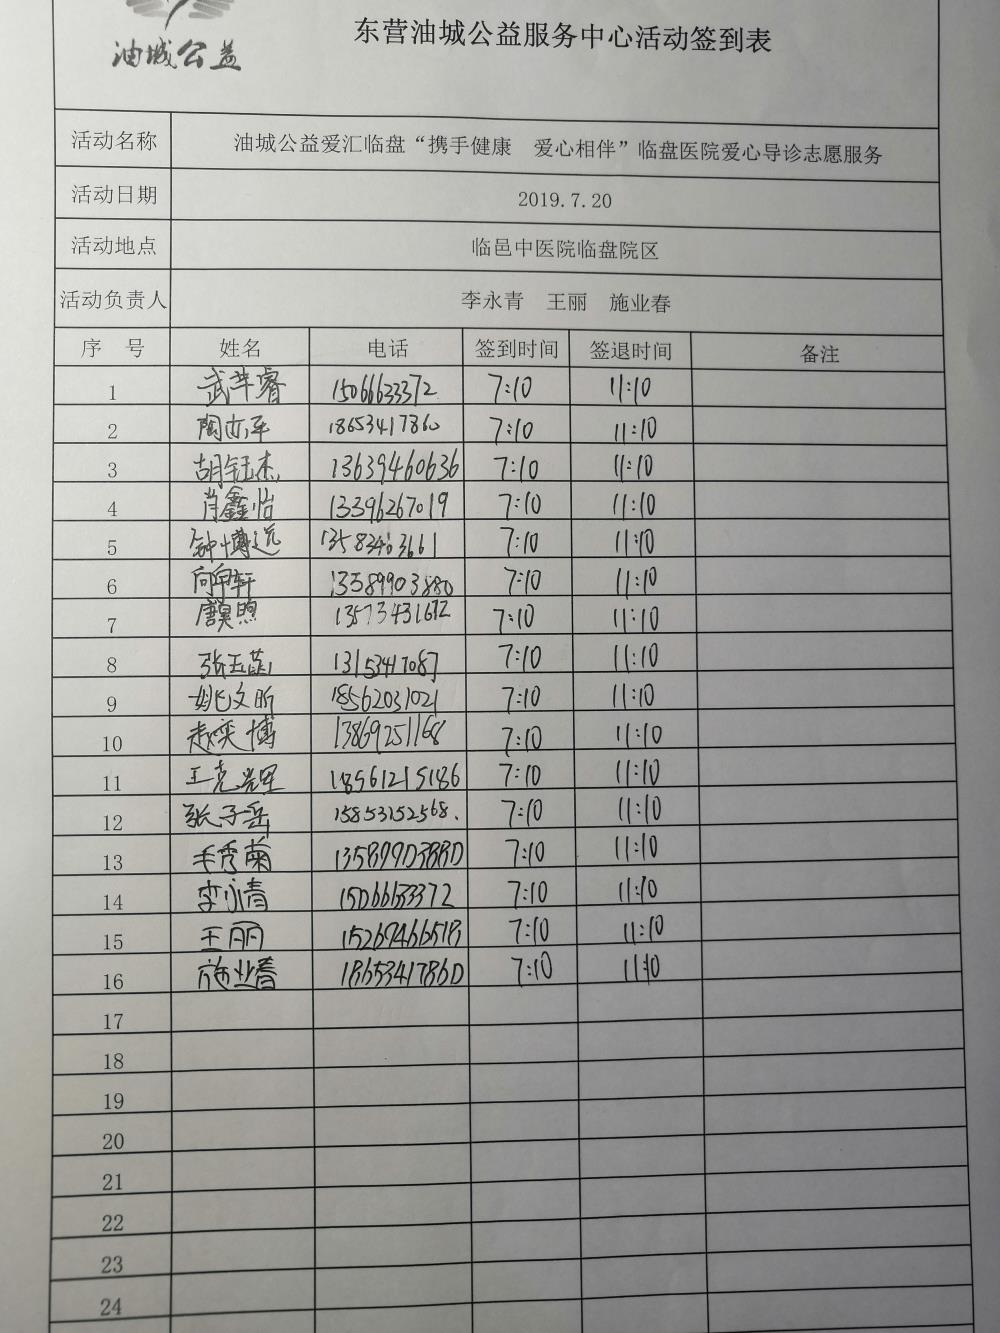 油城公益
东营油城公益服务中心活动签到表
活动名称 油城公益爱汇临盘“携手健康 爱心相伴”临盘医院爱心导诊志愿服务
活动日期 2019.7.20
活动地点 临邑中医院临盘院区
活动负责人 李永青 王丽 施业春
序 号 姓名 电话 签到时间 签退时间 备注
1 15066633372 7:10 11:10
2 陶亦平 18653417860 7:10 11:10
3 胡钰杰 13639460636 7:10 11:10
4 肖鑫怡 13396267019 7:10 11:10
5 钟博远 13583463661 7:10 11:10
6 13589903880 7:10 11:10
7 唐昊煦 13573431672 7:10 11:10
8 13153417087 7:10 11:10
9 姚文昕 18562031021 7:10 11:10
10 赵奕博 13869251168 7:10 11:10
11 王克辉军 18561215186 7:10 11:10
12 张子岳 15853152568. 7:10 11:10
13 毛秀菊 13589903880 7:10 11:10
14 李永青 15066633372 7:10 11:10
15 王丽 15269466518 7:10 11:10
16 施业春 18653417860 7:10 11:10
17
18
19
20
21
22
23
24